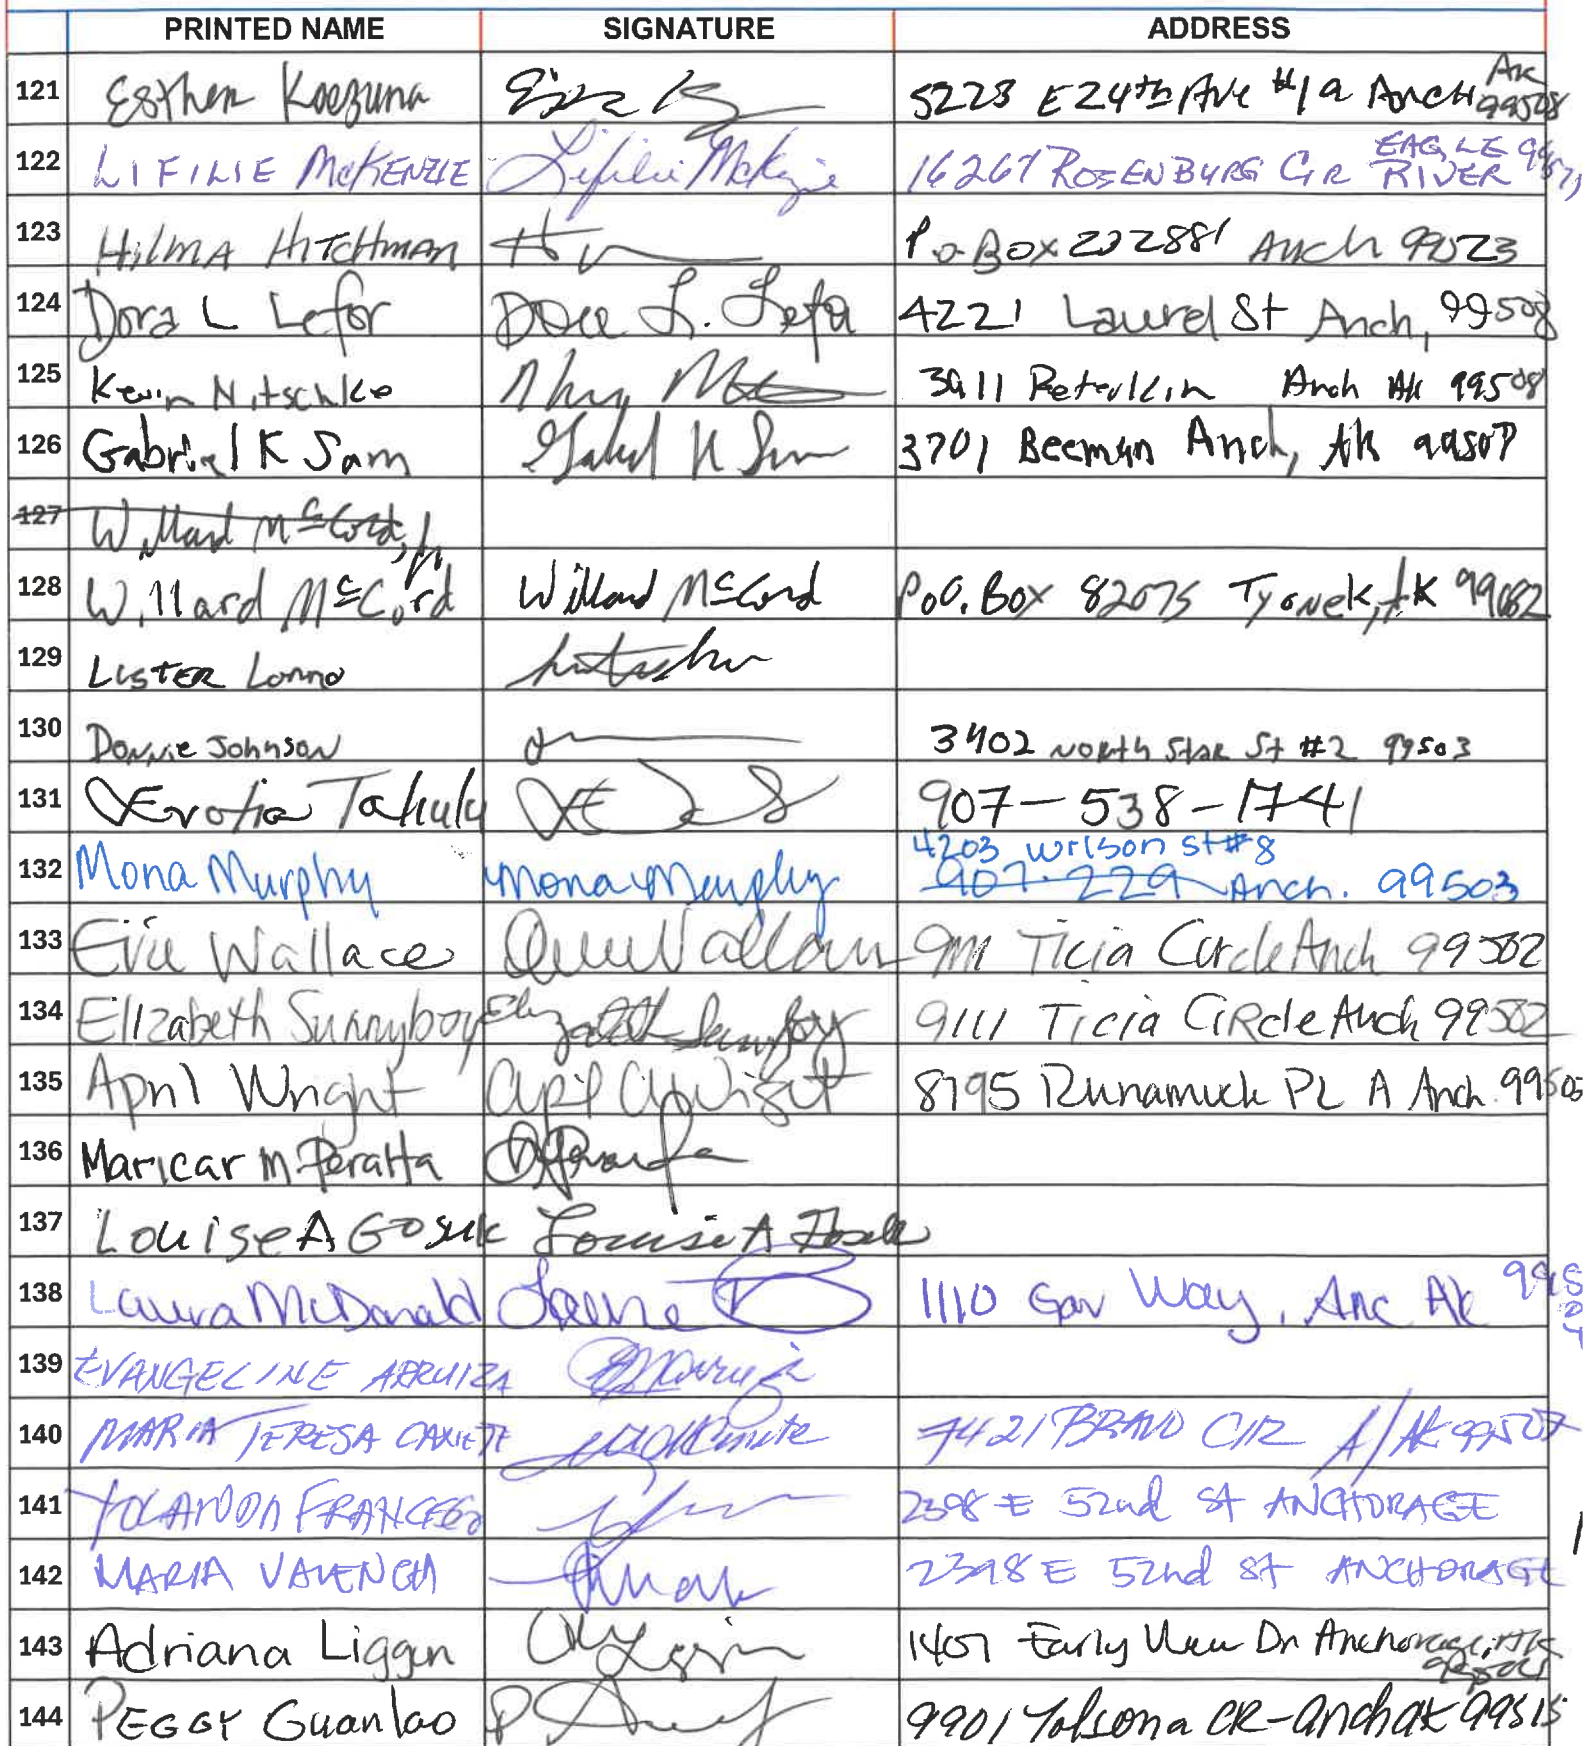 PRINTED NAME SIGNATURE ADDRESS
121 Esther Koezuna 5223 E 24th Ave #19 Anch AK 99508
122 LIFILIE McKENZIE Lifilie McKenzie 16267 ROSENBURG CIR EAGLE RIVER
123 HilmA HITCHman P.O. Box 232881 Anch 99523
124 Dora L Lefor Dora L. Lefor 4221 Laurel St Anch, 99508
125 Kevin Nitschke 3911 Peterkin Anch AK 99508
126 Gabriel K Sam Gabriel K Sam 3701 Beeman Anch, AK 99507
127 Willard McCord, Jr
128 Willard McCord Willard McCord P.O. Box 82075 Tyonek, AK 99682
129 LISTER Lonno
130 Donnie Johnson 3402 North Star St #2 99503
131 907-538-1741
132 Mona Murphy Mona Murphy 4203 Wilson St #8
907-229 Anch. 99503
133 Evie Wallace 9111 Ticia Circle Anch 99502
134 Elizabeth Sunnyboy Elizabeth Sunnyboy 9111 Ticia CiRcle Anch 99502
135 April Wright April Wright 8795 Runamuck PL A Anch
136 Maricar M Peralta
137 Louise A Gosuk Louise A Gosuk
138 Laura McDonald 1110 Gov Way, Anc Ak
139 EVANGELINE ARRUIZA
140 MARIA TERESA 7421 BRAVO CIR A/AK 99507
141 2398 E 52nd St ANCHORAGE
142 MARIA VALENCIA 2398 E 52nd St ANCHORAGE
143 Adriana Liggin 1407 Early View Dr Anchorage, AK
144 PEGGY Guanlao 9901 Tolsona CR - Anch AK 99515